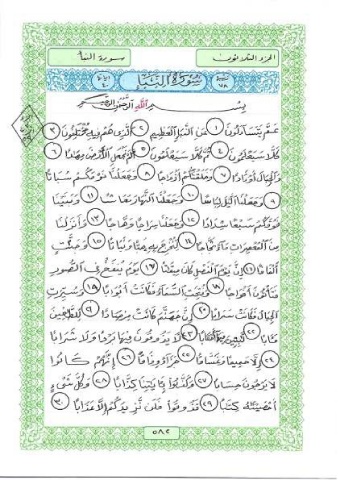 الجزء الثلاثون
سورة النبأ
سورة النبإ
بسم الله الرحمن الرحيم
عَمَّ يَتَسَاءَلُونَ ١ عَنِ النَّبَإِ الْعَظِيمِ ٢ الَّذِي هُمْ فِيهِ مُخْتَلِفُونَ ٣
كَلَّا سَيَعْلَمُونَ ٤ ثُمَّ كَلَّا سَيَعْلَمُونَ ٥ أَلَمْ نَجْعَلِ الْأَرْضَ مِهَادًا ٦
وَالْجِبَالَ أَوْتَادًا ٧ وَخَلَقْنَاكُمْ أَزْوَاجًا ٨ وَجَعَلْنَا نَوْمَكُمْ سُبَاتًا
٩ وَجَعَلْنَا اللَّيْلَ لِبَاسًا ١٠ وَجَعَلْنَا النَّهَارَ مَعَاشًا ١١ وَبَنَيْنَا
فَوْقَكُمْ سَبْعًا شِدَادًا ١٢ وَجَعَلْنَا سِرَاجًا وَهَّاجًا ١٣ وَأَنْزَلْنَا
مِنَ الْمُعْصِرَاتِ مَاءً ثَجَّاجًا ١٤ لِنُخْرِجَ بِهِ حَبًّا وَنَبَاتًا ١٥ وَجَنَّاتٍ
أَلْفَافًا ١٦ إِنَّ يَوْمَ الْفَصْلِ كَانَ مِيقَاتًا ١٧ يَوْمَ يُنْفَخُ فِي الصُّورِ
فَتَأْتُونَ أَفْوَاجًا ١٨ وَفُتِحَتِ السَّمَاءُ فَكَانَتْ أَبْوَابًا ١٩ وَسُيِّرَتِ
الْجِبَالُ فَكَانَتْ سَرَابًا ٢٠ إِنَّ جَهَنَّمَ كَانَتْ مِرْصَادًا ٢١ لِلطَّاغِينَ
مَآبًا ٢٢ لَابِثِينَ فِيهَا أَحْقَابًا ٢٣ لَا يَذُوقُونَ فِيهَا بَرْدًا وَلَا شَرَابًا
٢٤ إِلَّا حَمِيمًا وَغَسَّاقًا ٢٥ جَزَاءً وِفَاقًا ٢٦ إِنَّهُمْ كَانُوا
لَا يَرْجُونَ حِسَابًا ٢٧ وَكَذَّبُوا بِآيَاتِنَا كِذَّابًا ٢٨ وَكُلَّ شَيْءٍ
أَحْصَيْنَاهُ كِتَابًا ٢٩ فَذُوقُوا فَلَنْ نَزِيدَكُمْ إِلَّا عَذَابًا ٣٠
٥٨٢